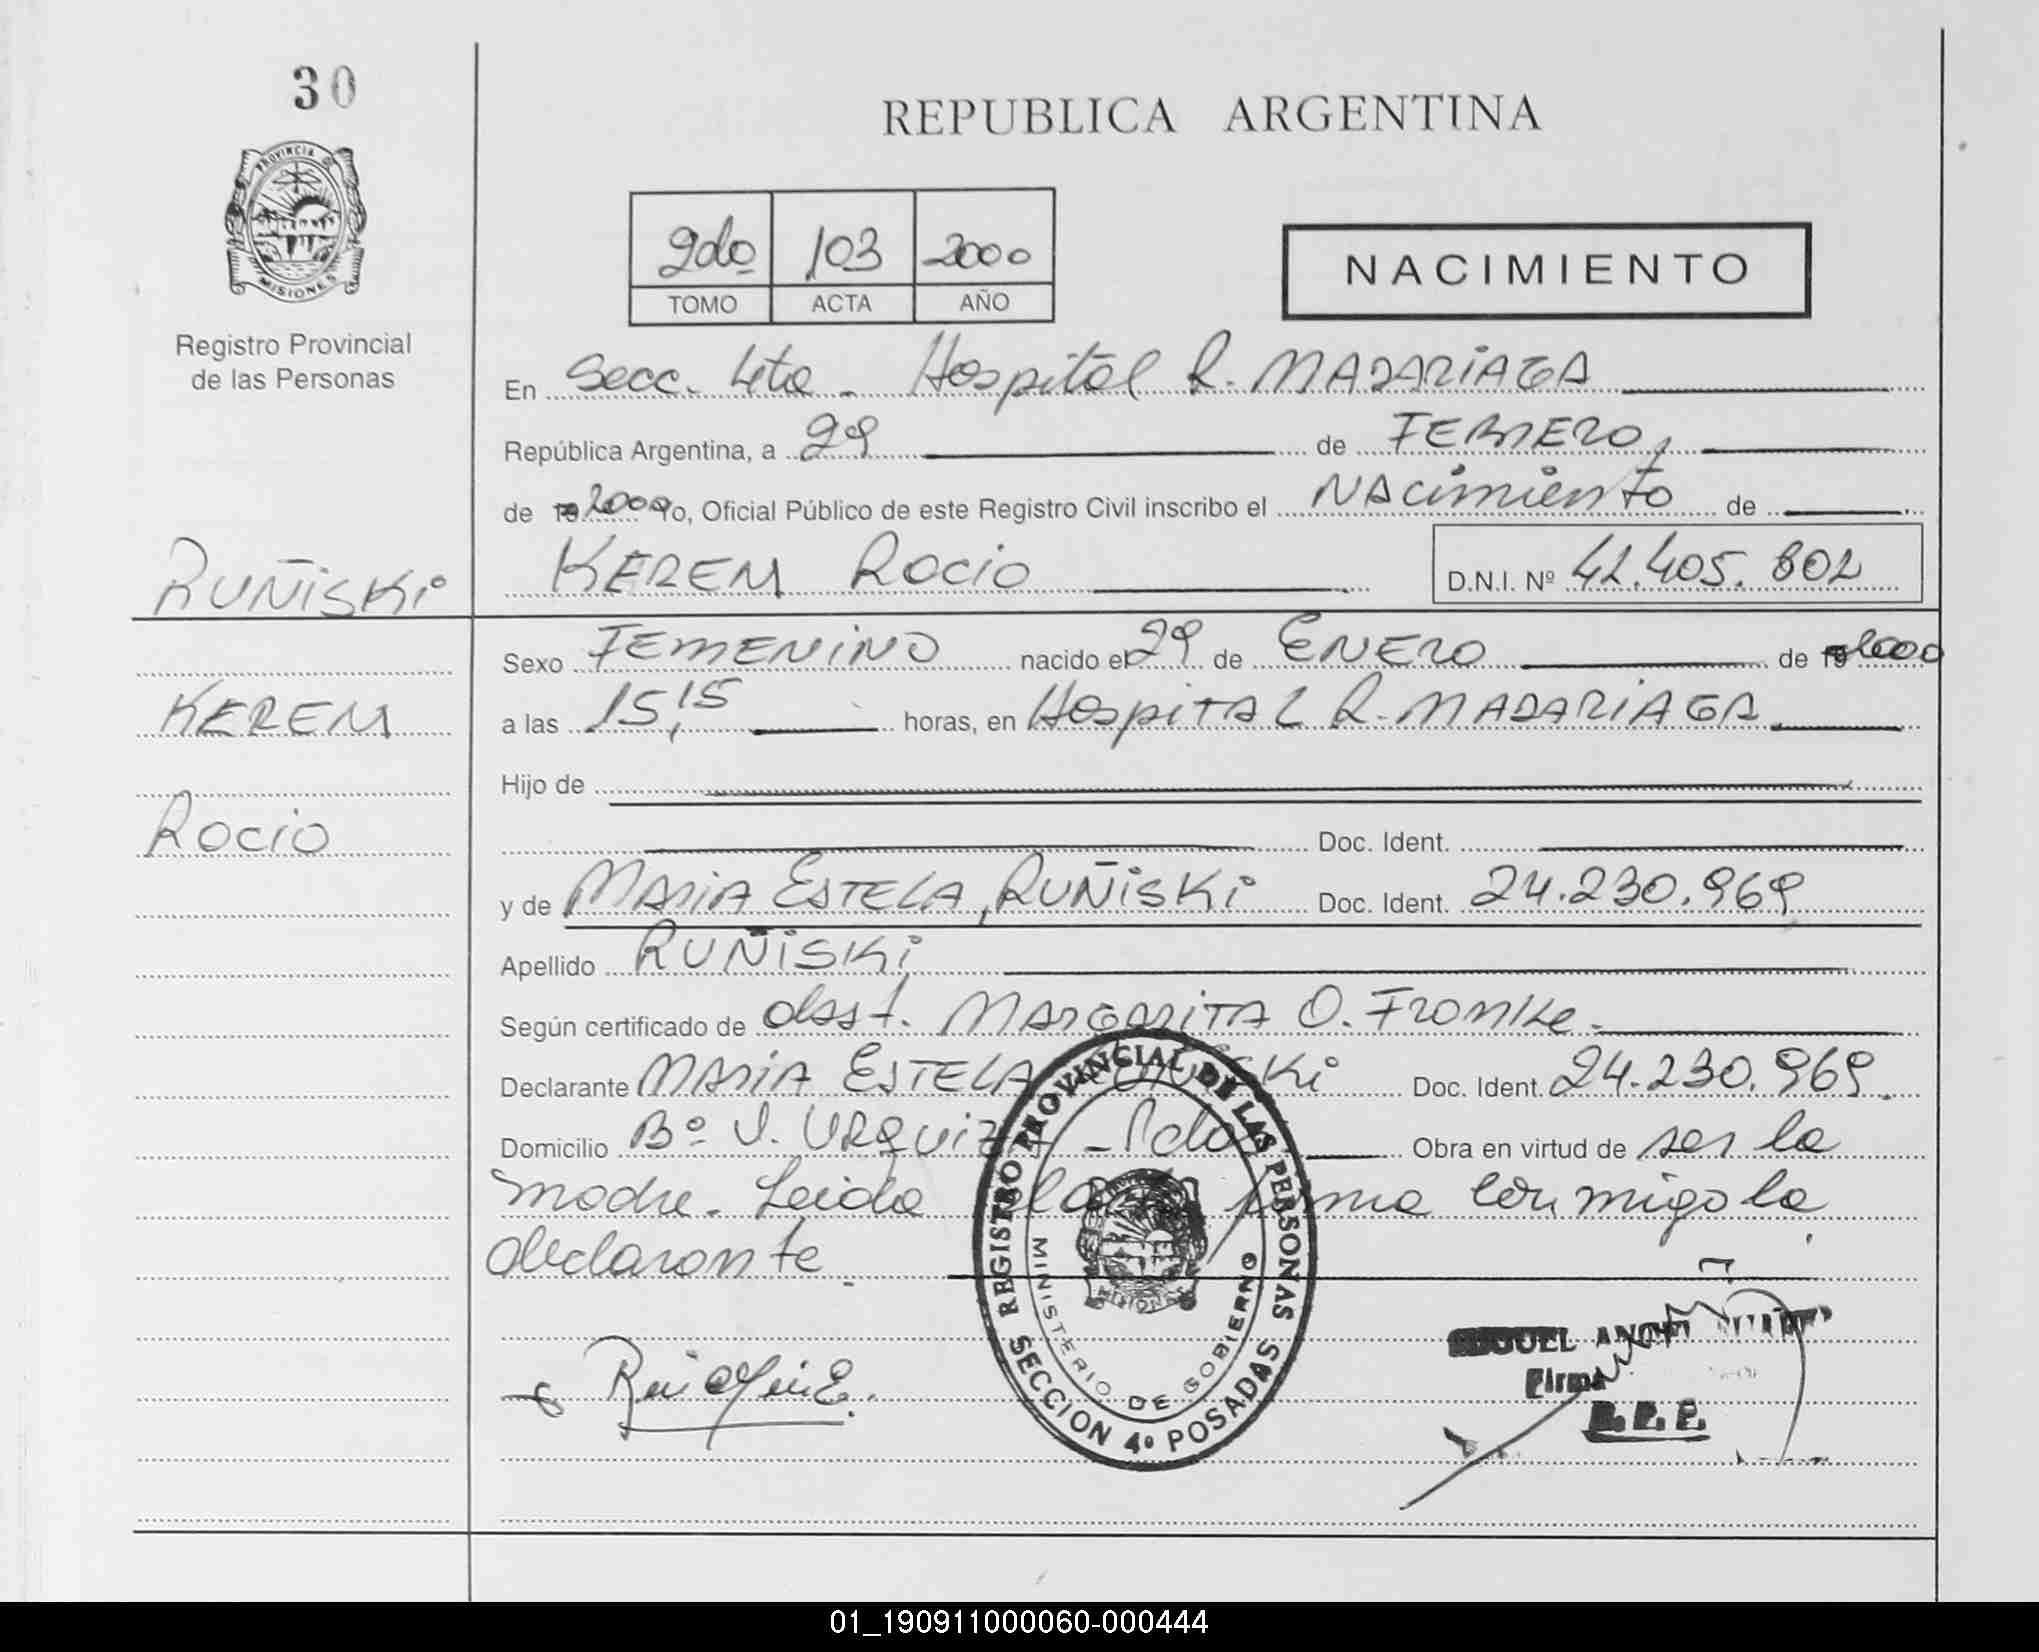 30
PROVINCIA DE
MISIONES
Registro Provincial
de las Personas
RUÑISKI
KEREM
ROCIO
REPUBLICA ARGENTINA
2do 103 2000
TOMO ACTA AÑO
NACIMIENTO
En Secc. 4ta - Hospital R. MADARIAGA
República Argentina, a 29 de FEBRERO,
de 19 2000 Yo, Oficial Público de este Registro Civil inscribo el NACimiento de
KEREM ROCIO D.N.I. Nº 42.405.802
Sexo FEMENINO nacido el 29 de ENERO de 19 2000
a las 15,15 horas, en HospiTAL R. MADARIAGA
Hijo de
Doc. Ident.
y de MARIA ESTELA, RUÑISKI Doc. Ident. 24.230.969
Apellido RUÑISKI
Según certificado de obst. MARGARITA O. FROMKE
Declarante MARIA ESTELA RUÑISKI Doc. Ident. 24.230.969.
Domicilio Bº J. URQUIZA - Pdas Obra en virtud de ser la
madre. Leida el acta firma conmigo la
declarante.
REGISTRO PROVINCIAL DE LAS PERSONAS
MINISTERIO DE GOBIERNO
MISIONES
SECCION 4º POSADAS
MIGUEL ANGEL
Firma
R. P. P.
01_190911000060-000444